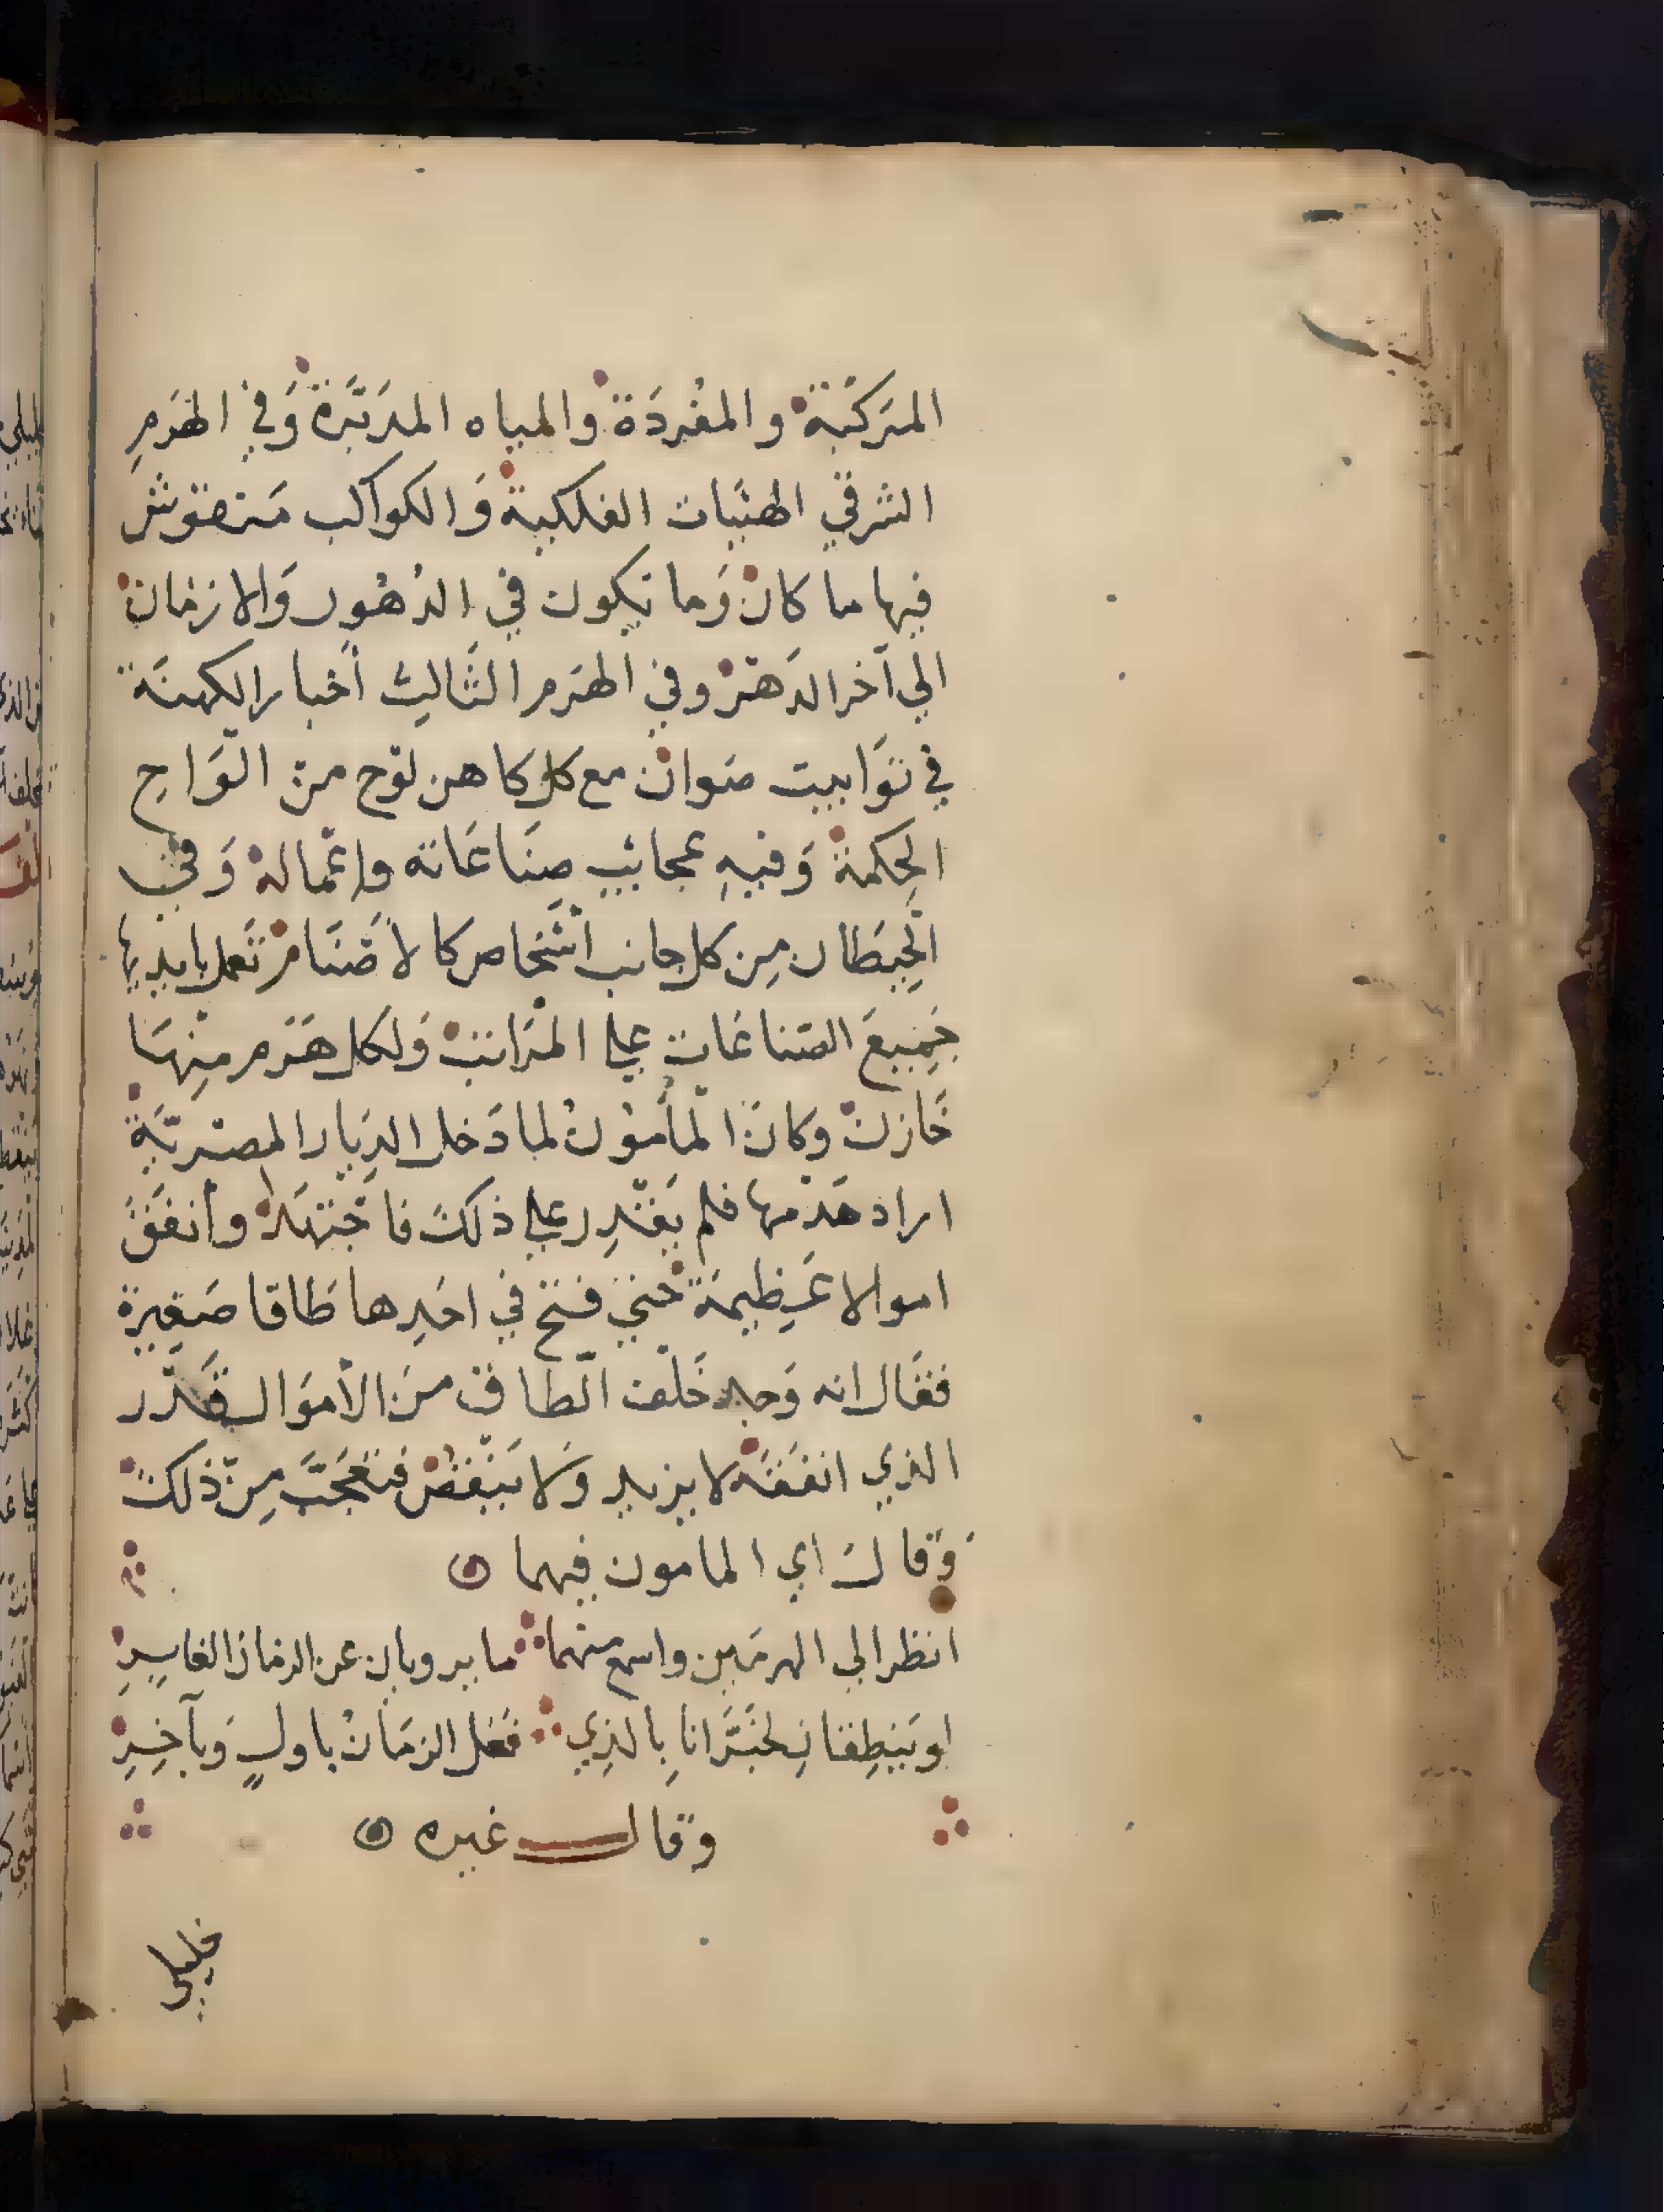 المَركَّبَة والمفْردَة والمياه المدَبَّرة وَفي الهَرَمِ
الشرقي الهيَّات الفلكية وَالكواكب مَنقوش
فيها ما كان وَما يكون في الدُهُور وَالازمَان
الي آخر الدَهر وفي الهَرَم الثَالث أخبار الكهنَة
في توَابيت صَوان مع كل كاهن لَوح من الوَاح
الحِكمة وَفيهِ عجائب صِنَاعَاته واعْمَاله وَفي
الحِيطان مِن كل جانب اشخاص كالاصْنَام تَعمل بايديها
جَمِيعَ الصَناعَات علي المرَاتب وَلكل هَرَم مِنهَا
خَازن وَكانَ المأمُونُ لما دَخل الدِيار المصْريَّة
اراد هَدْمها فلم يَقْدِر علي ذلكَ فاجْتهَد وأنفَقَ
اموالا عَظِيمَة حتي فتح في احَدِها طَاقا صَغِيرة
فقَال انه وَجد خَلْف الطاق منَ الأموَال قَدْر
الذي انفَقَه لا يزيد وَلا يَنْقص فتعَجَّبَ مِن ذلكَ
وَقالَ اي المامون فيهما
انظر الي الهرمَين واسمع منهما ما يرويان عن الزمان الغابِرِ
او يَنطِقان لخبَّرَانا بالذِي فَعَل الزمَانُ باولٍ وَبآخِرِ
وَقال غيره
خليلي